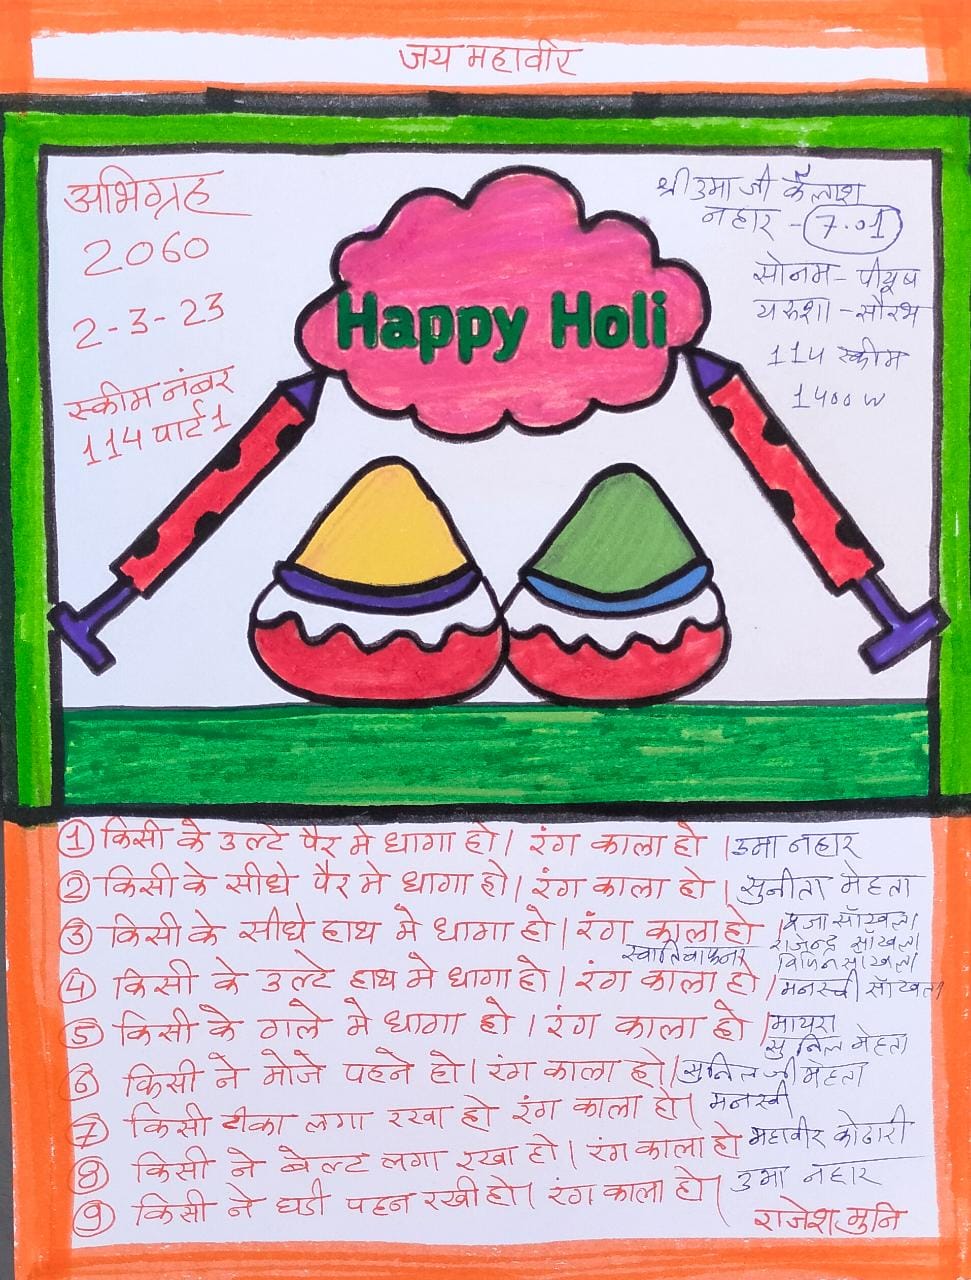 जय महावीर
अभिग्रह
2060
2-3-23
स्कीम नंबर
114 पार्ट 1
श्री उमा जी कैलाश
नहार - 7.01
सोनम - पीयूष
यरुशा - सौरभ
114 स्कीम
1400 W
Happy Holi
1 किसी के उल्टे पैर मे धागा हो। रंग काला हो । उमा नहार
2 किसी के सीधे पैर मे धागा हो। रंग काला हो । सुनीता मेहता
3 किसी के सीधे हाथ मे धागा हो। रंग काला हो
राजेन्द्र सांखला
विपिन सांखला
4 किसी के उल्टे हाथ मे धागा हो। रंग काला हो । मनस्वी सॉखला
5 किसी के गले मे धागा हो । रंग काला हो । मायरा
सुनिल मेहता
6 किसी ने मोजे पहने हो। रंग काला हो। सुनिल जी मेहता
7 किसी टीका लगा रखा हो रंग काला हो। मनस्वी
8 किसी ने बेल्ट लगा रखा हो। रंग काला हो महावीर कोठारी
9 किसी ने घडी पहन रखी हो। रंग काला हो। उमा नहार
राजेश मुनि